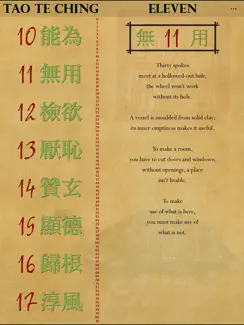 TAO TE CHING
10 能為
11 無用
12 檢欲
13 厭恥
14 贊玄
15 顯德
16 歸根
17 淳風
ELEVEN
...
無 11 用
Thirty spokes
meet at a hollowed-out hub;
the wheel won't work
without its hole.
A vessel is moulded from solid clay;
its inner emptiness makes it useful.
To make a room,
you have to cut doors and windows;
without openings, a place
isn't livable.
To make
use of what is here,
you must make use of
what is not.